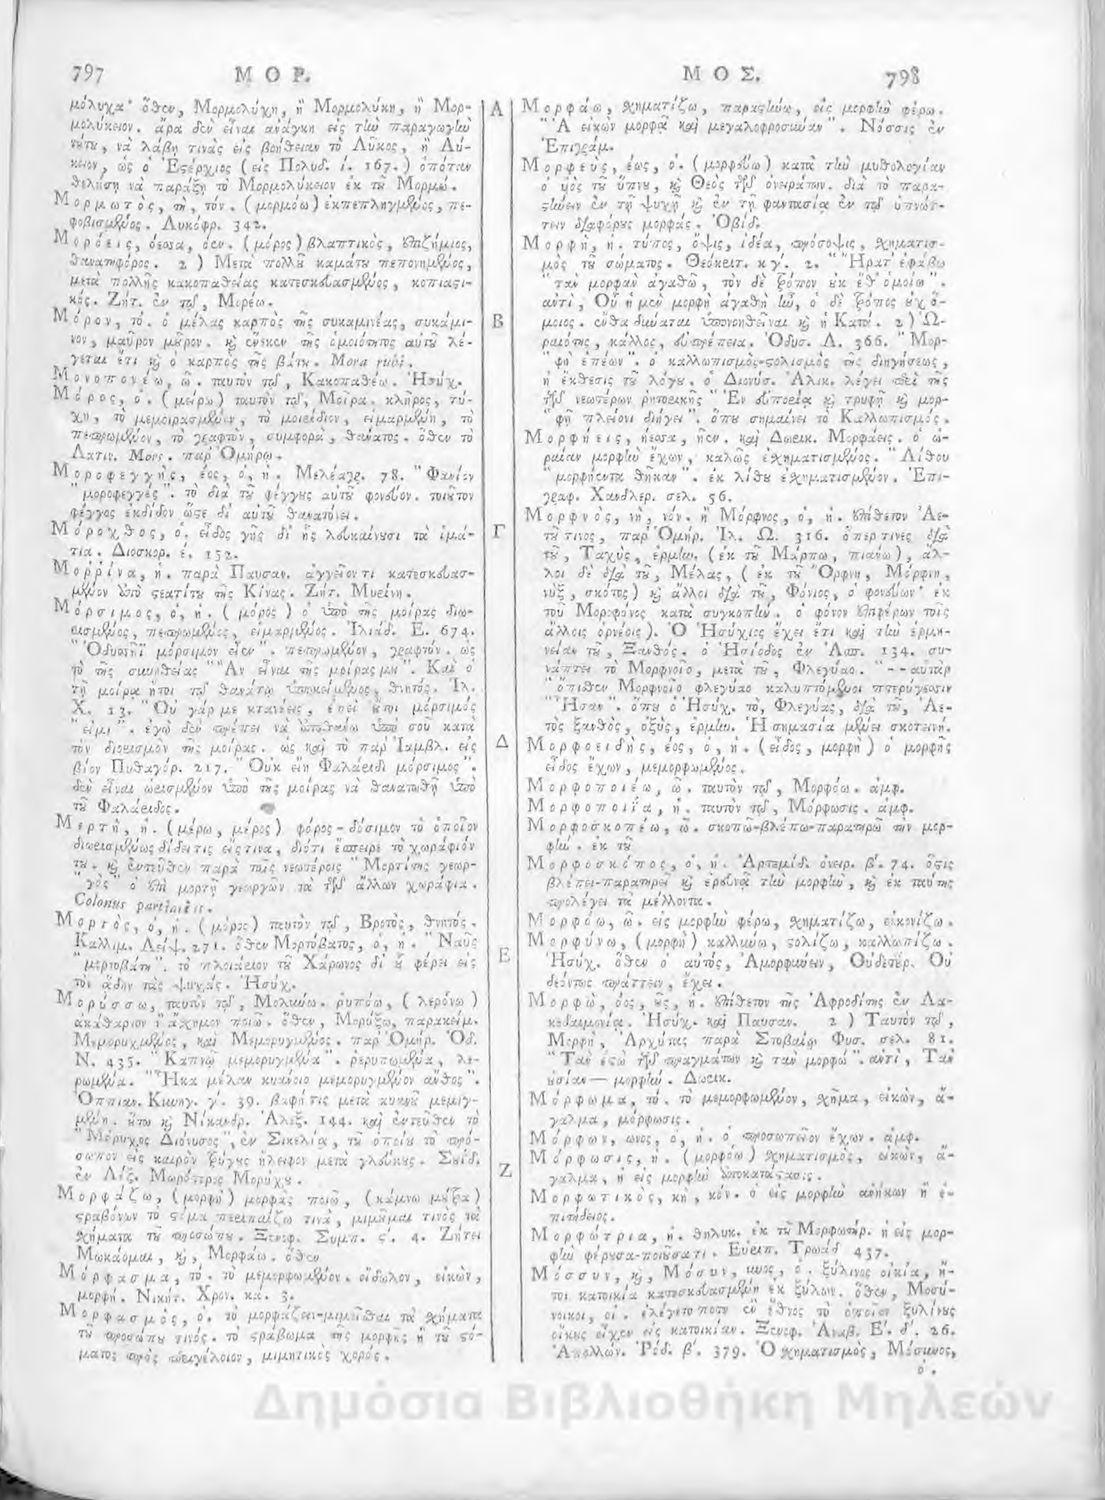 797 ΜΟΡ.
μόλυχα· ὅθεν, Μορμολύχη, ἢ Μορμολύκη, ἢ Μορ-
μολύκειον. ἄρα δὲν εἶναι ἀνάγκη εἰς τὴν παραγωγὴν
νὰ λάβῃ τινὰς εἰς βοήθειαν τὸ Λύκος, ἢ Λύ-
κειον, ὡς ὁ Ἐξέρχιος (εἰς Πολυδ. ί. 167.) ὁπόταν
θελήσῃ νὰ παράξῃ τὸ Μορμολύκειον ἐκ τοῦ Μορμώ.
Μορμωτὸς, τὴ, τόν. (μορμόω) ἐκπεπληγμένος, πε-
φοβισμένος. Λυκόφρ. 342.
Μορόεις, όεσσα, όεν. (μόρος) βλαπτικὸς, ἐπιζήμιος,
θανατηφόρος. 2) Μετὰ πολλοῦ καμάτου πεπονημένος,
μετὰ πολλῆς κακοπαθείας κατεσκευασμένος, κοπιαστι-
κός. Ζήτ. ἐν τῷ, Μορέω.
Μόρον, τό. ὁ μέλας καρπὸς τῆς συκαμινέας, συκάμι-
νον, μαῦρον μῶρον. καὶ ἕνεκεν τῆς ὁμοιότητος αὐτοῦ λέ-
γεται ἔτι καὶ ὁ καρπὸς τῆς βάτου. Mora rubi.
Μονοπονέω, ῶ. ταυτὸν τῷ, Κακοπαθέω. Ἡσύχ.
Μόρος, ὁ. (μείρω) ταυτὸν τῷ, Μοῖρα. κλῆρος, τύ-
χη, τὸ μεμοιρασμένον, τὸ μοιρίδιον, εἱμαρμένη, τὸ
πεπρωμένον, τὸ γραφτὸν, συμφορὰ, θάνατος. ὅθεν τὸ
Λατιν. Mors. παρ' Ὁμήρῳ.
Μοροφεγγὴς, έος, ὁ, ἡ. Μελέαγρ. 78. "Φανίον
"μοροφεγγές". τὸ διὰ τοῦ φέγγους αὑτοῦ φονεῦον. τοιοῦτον
φέγγος ἐκδίδον ὥστε δι' αὐτοῦ θανατόνει.
Μόροχθος, ὁ. εἶδος γῆς δι' ἧς λευκαίνουσι τὰ ἱμά-
τια. Διοσκορ. ἑ. 152.
Μορρίνα, ἡ. παρὰ Παυσαν. ἀγγεῖόν τι κατεσκευασ-
μένον ὑπὸ στεατίτου τῆς Κίνας. Ζήτ. Μυρίνη.
Μόρσιμος, ὁ, ἡ. (μόρος) ὁ ὑπὸ τῆς μοίρας διω-
ρισμένος, πεπρωμένος, εἱμαρμένος. Ἰλιάδ. Ε. 674.
"Ὀδυσσῆϊ μόρσιμον ἦεν". πεπρωμένον, γραφτόν. ὡς
τὸ τῆς συνηθείας "Ἂν εἶναι τῆς μοίρας μου". Καὶ ὁ
τῇ μοίρᾳ ἤτοι τῷ θανάτῳ ὑποκείμενος, θνητός. Ἰλ.
Χ. 13. "Οὐ γάρ με κτανέεις, ἐπεὶ οὔτοι μόρσιμός
"εἰμι". ἐγὼ δὲν πρέπει νὰ ὑποθάνω ὑπὸ σοῦ κατὰ
τὸν διορισμὸν τῆς μοίρας. ὡς καὶ τὸ παρ' Ἰαμβλ. εἰς
βίον Πυθαγόρ. 217. "Οὐκ εἴη Φαλάριδι μόρσιμος".
δὲν εἶναι ὡρισμένον ὑπὸ τῆς μοίρας νὰ θανατωθῇ ὑπὸ
τοῦ Φαλάριδος.
Μορτὴ, ἡ. (μείρω, μέρος) φόρος-δόσιμον τὸ ὁποῖον
διωρισμένως δίδει τις εἴς τινα, διότι ἔσπειρε τὸ χωράφιόν
του. καὶ ἐντεῦθεν παρὰ τοῖς νεωτέροις "Μορτίτης γεωρ-
"γὸς" ὁ ἐπὶ μορτῇ γεωργῶν τὰ τῶν ἄλλων χωράφια.
Colonus partiarius.
Μορτὸς, ὁ, ἡ. (μόρος) ταυτὸν τῷ, Βροτὸς, θνητός.
Καλλιμ. Λείψ. 271. ὅθεν Μορτόβατος, ὁ, ἡ. "Ναῦς
"μορτοβάτη". τὸ πλοιάριον τοῦ Χάρωνος δι' οὗ φέρει εἰς
τὸν ᾅδην τὰς ψυχάς. Ἡσύχ.
Μορύσσω, ταυτὸν τῷ, Μολύνω. ῥυπόω, (λερόνω)
ἀκάθαρτον ἢ ἄσχημον ποιῶ. ὅθεν, Μορύξω, παρακείμ.
Μεμορυχμένος, καὶ Μεμορυγμένος. παρ' Ὁμήρ. Ὀδ.
Ν. 435. "Καπνῷ μεμορυγμένα". ῥερυπωμένα, λε-
ρωμένα. "Ἧκα μέλαν κυάνοιο μεμορυγμένον ἄνθος".
Ὀππιαν. Κυνηγ. γ'. 39. βαφή τις μετὰ κυανοῦ μεμιγ-
μένη. οὕτω καὶ Νίκανδρ. Ἀλεξ. 144. καὶ ἐντεῦθεν τὸ
"Μόρυχος Διόνυσος", ἐν Σικελίᾳ, τοῦ ὁποίου τὸ πρό-
σωπον εἰς καιρὸν τρύγης ἤλειφον μετὰ γλεύκους. Σουΐδ.
ἐν Λέξ. Μωρότερος Μορύχου.
Μορφάζω, (μορφὴ) μορφὰς ποιῶ, (κάμνω μοῦτρα)
στραβόνων τὸ στόμα περιπαίζω τινὰ, μιμοῦμαι τινὸς τὰ
σχήματα τοῦ προσώπου. Ξενοφ. Συμπ. ς'. 4. Ζήτει
Μωκάομαι, καὶ, Μορφάω. ὅθεν
Μόρφασμα, τό. τὸ μεμορφωμένον. εἴδωλον, εἰκών,
μορφή. Νικήτ. Χρον. κα. 3.
Μορφασμὸς, ὁ. τὸ μορφάζειν-μιμεῖσθαι τὰ σχήματα
τοῦ προσώπου τινός. τὸ στράβωμα τῆς μορφῆς ἢ τοῦ στό-
ματος πρὸς περιγέλοιον, μιμητικὸς χορός.
Α
Β
Γ
Δ
Ε
Ζ
ΜΟΣ. 798
Μορφάω, σχηματίζω, παραστένω, εἰς μορφὴν φέρω.
"Ἁ εἰκὼν μορφᾷ καὶ μεγαλοφροσύναν". Νόσσις ἐν
Ἐπιγράμ.
Μορφεὺς, έως, ὁ. (μορφεύω) κατὰ τὴν μυθολογίαν
ὁ υἱὸς τοῦ ὕπνου, καὶ Θεὸς τῶν ὀνειράτων. διὰ τὸ παρα-
στένειν ἐν τῇ ψυχῇ καὶ ἐν τῇ φαντασίᾳ ἐν τῷ ὑπνώτ-
τειν διαφόρους μορφάς. Ὀβίδ.
Μορφὴ, ἡ. τύπος, ὄψις, ἰδέα, πρόσοψις, σχηματισ-
μὸς τοῦ σώματος. Θεόκριτ. κγ'. 2. "Ἤρατ' ἐφάβω
"τὰν μορφὰν ἀγαθῶ, τὸν δὲ τρόπον οὐκ ἔθ' ὁμοίω".
ἀντὶ, Οὗ ἡ μὲν μορφὴ ἀγαθὴ ἦν, ὁ δὲ τρόπος οὐχ ὅ-
μοιος. ἔνθα δύναται ὑπονοηθεῖναι καὶ ἡ Κατά. 2) Ὡ-
ραιότης, κάλλος, εὐπρέπεια. Ὀδυσ. Λ. 366. "Μορ-
"φὴ ἐπέων". ὁ καλλωπισμὸς-στολισμὸς τῆς διηγήσεως,
ἡ ἔκθεσις τοῦ λόγου. ὁ Διονύσ. Ἁλικ. λέγει περὶ τῆς
τῶν νεωτέρων ῥητορικῆς "Ἐν εὐπορίᾳ καὶ τρυφῇ καὶ μορ-
"φῇ πλείονι διήγει". ὅπου σημαίνει τὸ Καλλωπισμός.
Μορφήεις, ήεσσα, ῆεν. καὶ Δωρικ. Μορφάεις. ὁ ὡ-
ραίαν μορφὴν ἔχων, καλῶς ἐσχηματισμένος. "Λίθου
"μορφήεντα θῆκαν". ἐκ λίθου ἐσχηματισμένον. Ἐπι-
γραφ. Χανδλερ. σελ. 56.
Μορφνὸς, νὴ, νόν. ἢ Μόρφνος, ὁ, ἡ. ἐπίθετον Ἀε-
τοῦ τινος, παρ' Ὁμήρ. Ἰλ. Ω. 316. ὅπερ τινες διὰ
τοῦ, Ταχὺς, ἑρμήν. (ἐκ τοῦ Μάρπω, πιάνω), ἄλ-
λοι δὲ διὰ τοῦ, Μέλας, (ἐκ τοῦ Ὄρφνη, Μόρφνη,
νὺξ, σκότος) καὶ ἄλλοι διὰ τοῦ, Φόνιος, ὁ φονεύων ἐκ
τοῦ Μοροφόνος κατὰ συγκοπήν. ὁ φόνον ἐπιφέρων τοῖς
ἄλλοις ὀρνέοις). Ὁ Ἡσύχιος ἔχει ἔτι καὶ τὴν ἑρμη-
νείαν τοῦ, Ξανθός. ὁ Ἡσίοδος ἐν Ἀσπ. 134. συ-
νάπτει τὸ Μορφνοῖο, μετὰ τοῦ, Φλεγύαο. "--αὐτὰρ
"ὄπισθεν Μορφνοῖο φλεγύαο καλυπτόμενοι πτερύγεσσιν
"Ἦσαν". ὅπου ὁ Ἡσύχ. τὸ, Φλεγύας, διὰ τοῦ, Ἀε-
τὸς ξανθὸς, ὀξὺς, ἑρμήν. Ἡ σημασία μένει σκοτεινή.
Μορφοειδὴς, έος, ὁ, ἡ. (εἶδος, μορφὴ) ὁ μορφῆς
εἶδος ἔχων, μεμορφωμένος.
Μορφοποιέω, ῶ. ταυτὸν τῷ, Μορφόω. ἀμφ.
Μορφοποιΐα, ἡ. ταυτὸν τῷ, Μόρφωσις. ἀμφ.
Μορφοσκοπέω, ῶ. σκοπῶ-βλέπω-παρατηρῶ τὴν μορ-
φήν. ἐκ τοῦ
Μορφοσκόπος, ὁ, ἡ. Ἀρτεμίδ. ὀνειρ. β'. 74. ὅστις
βλέπει-παρατηρεῖ καὶ ἐρευνᾷ τὴν μορφὴν, καὶ ἐκ ταύτης
προλέγει τὰ μέλλοντα.
Μορφόω, ῶ. εἰς μορφὴν φέρω, σχηματίζω, εἰκονίζω.
Μορφύνω, (μορφὴ) καλλύνω, στολίζω, καλλωπίζω.
Ἡσύχ. ὅθεν ὁ αὐτὸς, Ἀμορφύνειν, Οὐδετέρ. Οὐ
δεόντως πράττειν, ἔχει.
Μορφὼ, όος, οῦς, ἡ. ἐπίθετον τῆς Ἀφροδίτης ἐν Λα-
κεδαιμονίᾳ. Ἡσύχ. καὶ Παυσαν. 2) Ταυτὸν τῷ,
Μορφὴ, Ἀρχύτας παρὰ Στοβαίῳ Φυσ. σελ. 81.
"Τὰν ἐστὼ τῶν πραγμάτων καὶ τὰν μορφώ". ἀντὶ, Τὰν
οὐσίαν— μορφήν. Δωρικ.
Μόρφωμα, τό. τὸ μεμορφωμένον, σχῆμα, εἰκὼν, ἄ-
γαλμα, μόρφωσις.
Μόρφων, ωνος, ὁ, ἡ. ὁ προσωπεῖον ἔχων. ἀμφ.
Μόρφωσις, ἡ. (μορφόω) σχηματισμὸς, εἰκὼν, ἄ-
γαλμα, ἡ εἰς μορφὴν ἀποκατάστασις.
Μορφωτικὸς, κὴ, κόν. ὁ εἰς μορφὴν ἀνήκων ἢ ἐ-
πιτήδειος.
Μορφώτρια, ἡ. θηλυκ. ἐκ τοῦ Μορφωτήρ. ἡ εἰς μορ-
φὴν φέρουσα-ποιοῦσά τι. Εὐριπ. Τρωάδ 437.
Μόσσυν, καὶ, Μόσυν, υνος, ὁ. ξύλινος οἰκία, ἤ-
τοι κατοικία κατεσκευασμένη ἐκ ξύλων. ὅθεν, Μοσύ-
νοικοι, οἱ. ἐλέγετό ποτε ἓν ἔθνος τὸ ὁποῖον ξυλίνους
οἴκους εἶχεν εἰς κατοικίαν. Ξενοφ. Ἀναβ. Ε'. δ'. 26.
Ἀπολλών. Ῥόδ. β'. 379. Ὁ σχηματισμὸς, Μόσυνος,
ὁ.
Δημόσια Βιβλιοθήκη Μηλεών